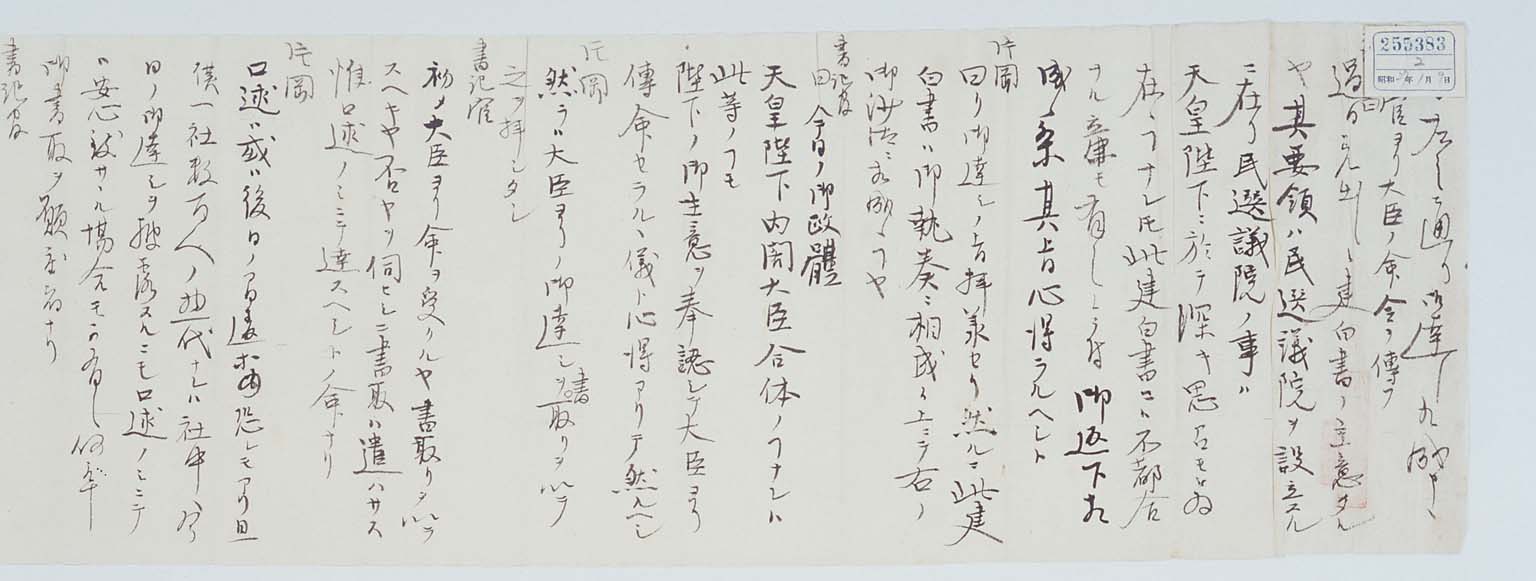 255383
2
昭和 年 月 日
左之通り御達シ
官ヨリ大臣ノ命令ヲ傳フ
過日差出シタル建白書ノ主意タル
ヤ其要領ハ民選議院ヲ設立スル
ニ在リ民選議院ノ事ハ
天皇陛下ニ於テ深キ思召モ被為
在ヿナレ𪜈此建白書ニハ不都合
ナル廉モ有之候付御返下相
成候条其旨心得ラルヘシト
片岡
曰ク御達シノ旨拝承セリ然ルニ此建
白書ハ御執奏ニ相成候上ニテ右ノ
御沙汰ニ相成候ヿヤ
書記官
曰今日ノ御政體
天皇陛下内閣大臣合体ノヿナレハ
此等ノヿモ
陛下ノ御主意ヲ奉認シテ大臣ヨリ
傳命セラルヽ儀ト心得アリテ然ルヘシ
片岡
然ラハ大臣ヨリノ御達シ書取リヲ以テ
之ヲ拝シタシ
書記官
初メ大臣ヨリ命ヲ受クルヤ書取リヲ以テ
スヘキヤ否ヤヲ伺ヒシニ書取ハ遣ハサス
惟口述ノミニテ達スヘシトノ命ナリ
片岡
口述ハ或ハ後日ノ間違等ノ恐レモアリ且
僕一社数万人ノ総代ナレハ社中ヘ今
日ノ御達シヲ披露スルニモ口述ノミニテ
ハ安心致サヽル場合モ可有之何卒
御書取ヲ願度者ナリ
書記官